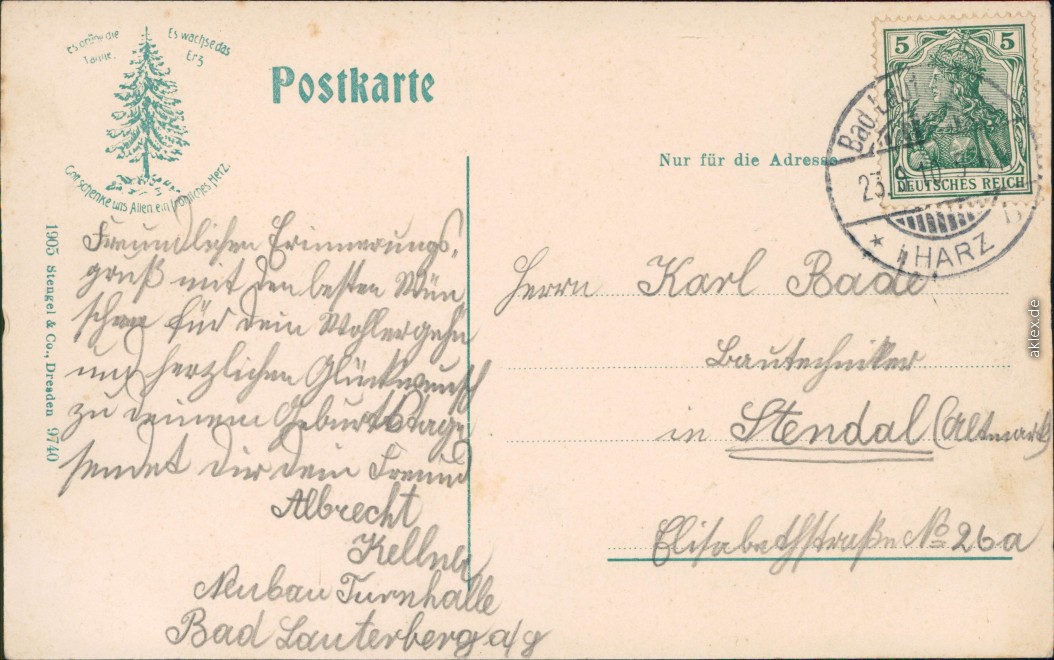 Es grüne die
Tanne.
Es wachse das
Erz
Gott schenke uns Allen ein fröhliches Herz.
Postkarte
Nur für die Adresse
5 5
DEUTSCHES REICH
Bad Laut
23.9.10
* HARZ
1905 Stengel & Co., Dresden 9740
Freundlichen Erinnerungs-
gruß mit den besten Wün
schen für Dein Wohlergehn
und herzlichen Glückwunsch
zu deinem Geburtstage
sendet Dir dein Freund
Albrecht
Kellner
Neubau Turnhalle
Bad Lauterberg a/H
Herrn Karl Bade
Bautechniker
in Stendal (Altmark)
Elisabethstraße No 26a
aklex.de